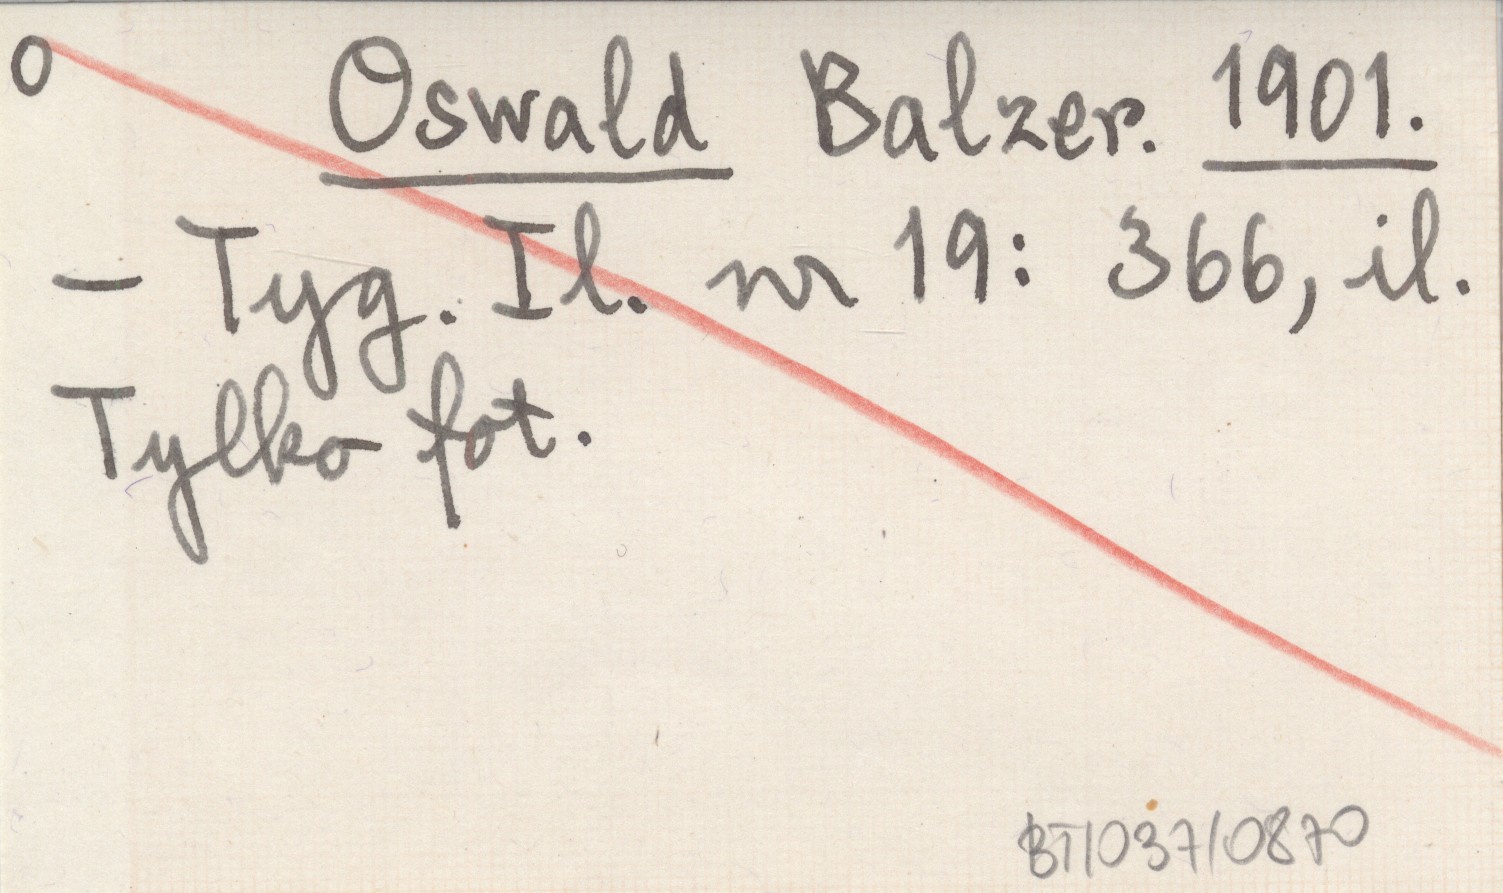 O Oswald Balzer. 1901.
- Tyg. Il. nr 19: 366, il.
Tylko fot.
BT/037/0870